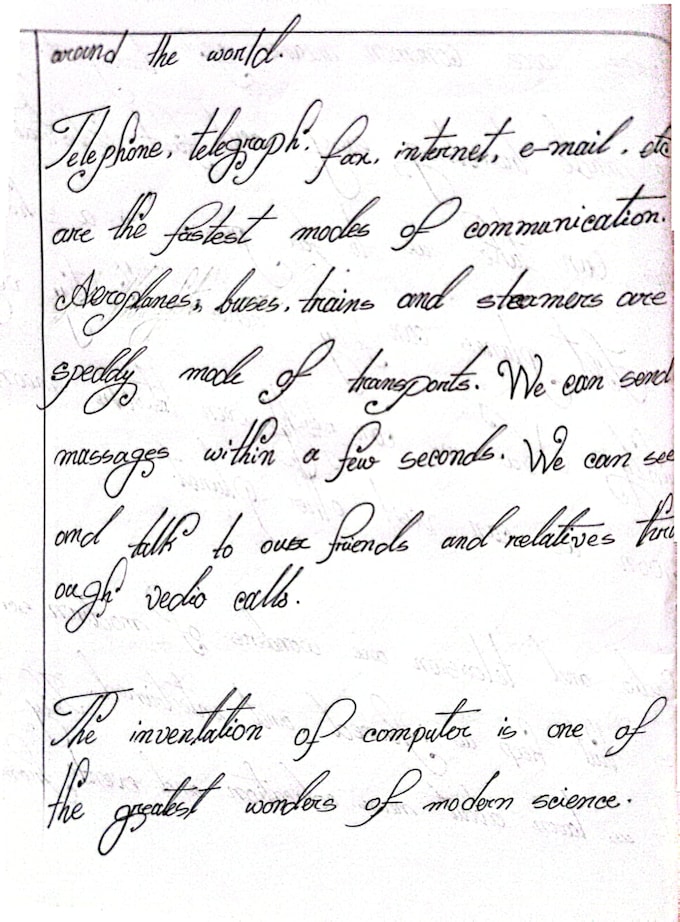 around the world.
Telephone, telegraph, fax, internet, e-mail, etc
are the fastest modes of communication.
Aeroplanes, buses, trains and steamers are
speddy mode of transports. We can send
massages within a few seconds. We can see
and talk to our friends and relatives thro
ough vedio calls.
The inventation of computer is one of
the greatest wonders of modern science.